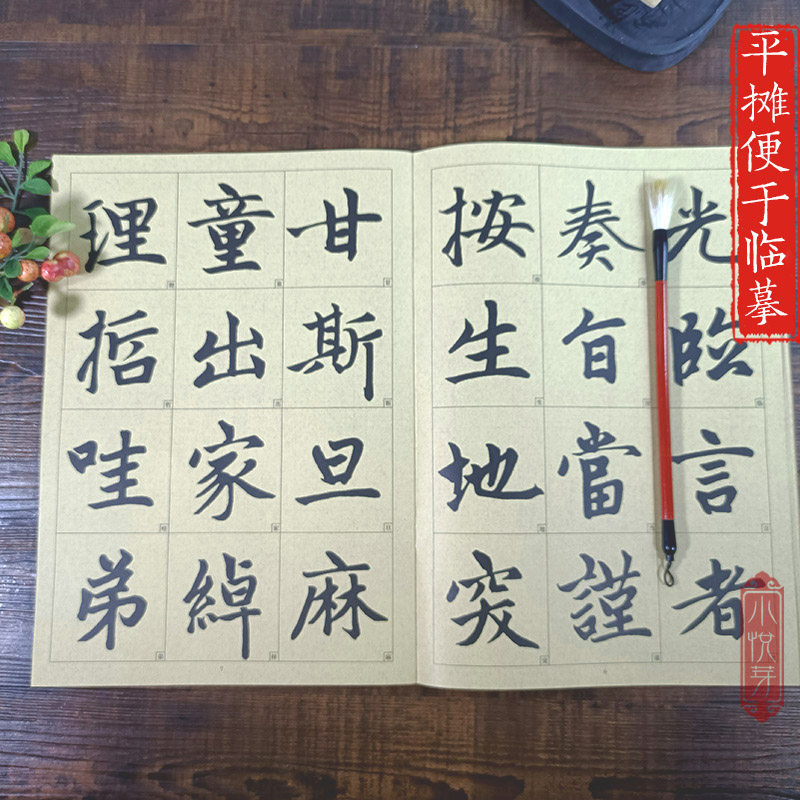 平摊便于临摹
光臨言者
奏旨當謹
按生地突
甘斯旦麻
童出家綽
理哲哇弟
7
小悦芽